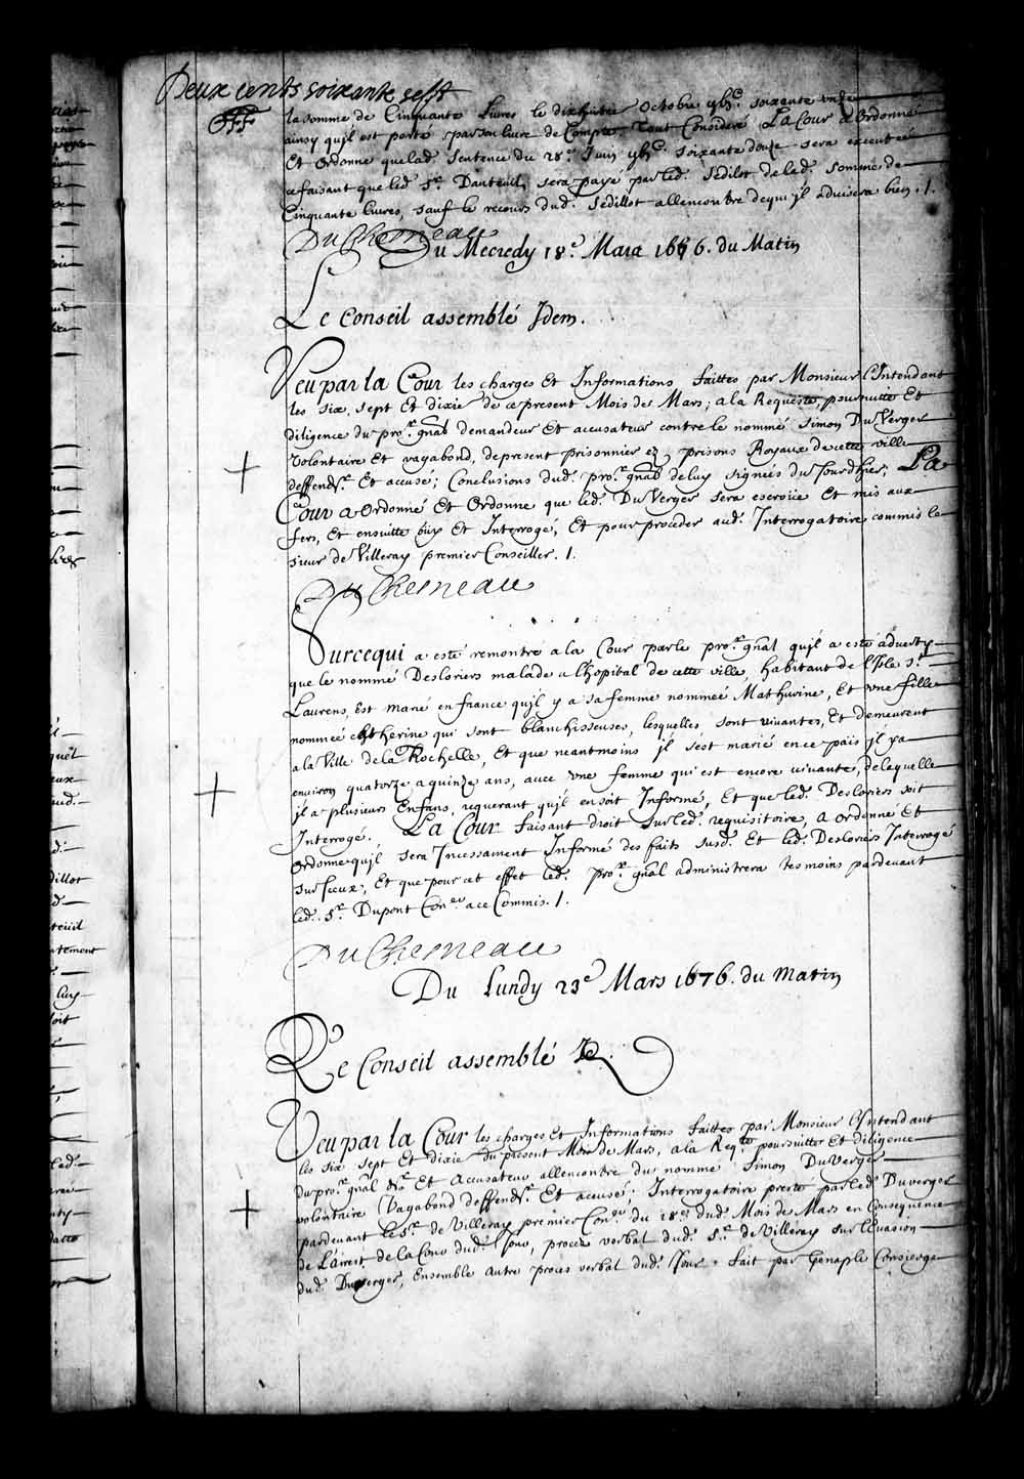 Deux cents soixante sept
la somme de Cinquante Livres le dixhuitie Octobre gbi.c soixante unze
ainsy quil est porté par son livre de Compte, Tout Consideré La Cour a Ordonné
Et Ordonne que lad. Sentence du 28.e Juin gbi.c soixante douze sera executée
ce faisant que led. S.r Dauteuil sera payé par led. Sedillot de lad. somme de
Cinquante livres, sauf le recours dud. Sedillot allencontre de qui jl advisera bien. /.
DuChesneau
Du Mecredy 18.e Mars 1676. du Matin
Le Conseil assemblé Jdem.
Veu par la Cour les charges Et Informations faittes par Monsieur l'Intendant
les six, sept Et dixie de ce present Mois de Mars; a la Requeste, poursuitte Et
diligence du pro.r gnãl demandeur Et accusateur contre le nommé Simon Du Verger
Volontaire Et vagabond, de present prisonnier ez prisons Royaux de cette ville
deffend.r Et accusé; Conclusions dud. pro.r gnãl deluy signées du Jourdhier; La
Cour a Ordonné Et Ordonne que led. DuVerger sera escroüé Et mis aux
fers, Et ensuitte oüy Et Interrogé, Et pour proceder aud. Interrogatoire commis le
sieur de Villeray premier Conseiller. /.
DuChesneau
Surcequi a esté remontré a la Cour par le pro.r gnãl quil a esté adverty
que le nommé Desloriers malade a lhopital de cette ville, habitant de l'Isle S.t
Laurens, Est marié en france quil y a sa femme nommée Mathurine, Et une fille
nommée Chtherine qui sont blanchisseuses, lesquelles sont vivantes, Et demeurent
a la Ville de la Rochelle, Et que neantmoins jl sest marié en ce païs jl y a
environ quatorze a quinze ans, avec une femme qui est encore vivante, de laquelle
jl a plusieurs Enfans, requerant quil en soit Informé, Et que led. Desloriers soit
Interrogé. La Cour faisant droit sur led. requisitoire, a Ordonné Et
Ordonne quil sera Incessament Informé des faits susd. Et led. Desloriers Interrogé
sur Iceux, Et que pour cet effet led. pro.r gnãl administrera tesmoins pardevant
led. S.r Dupont Con.er a ce Commis. /.
DuChesneau
Du Lundy 23.e Mars 1676. du matin
Le Conseil assemblé
Veu par la Cour les charges Et Informations faittes par Monsieur l'Intendant
les six sept Et dixie du present Mois de Mars, a la Req.te poursuitte Et diligence
du pro.r gnãl d.r Et Accusateur allencontre du nommé Simon DuVerger
volontaire Vagabond deffend.r Et accusé; Interrogatoire presté par led. Duverger
pardevant le S.r de Villeray premier Con.er du 18.e dud. Mois de Mars en Consequence
de L'arrest de la Cour dud. Jour, procez verbal dud. S.r de Villeray sur l'Evasion
dud. Duverger, Ensemble autre proces verbal dud. Jour fait par Genaple Concierge